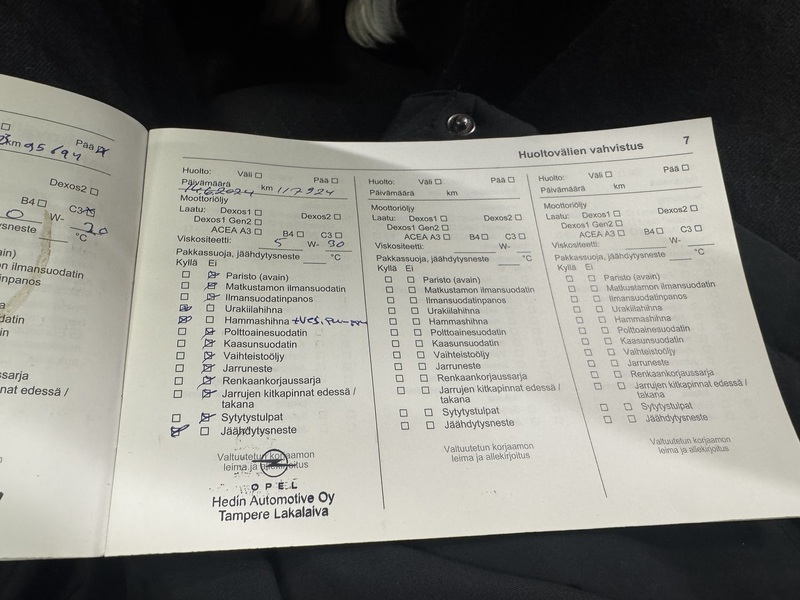 km 95 694 Pää ☒
Dexos2 ☐
B4 ☐ C3 ☒
0 W- 20
°C
ain)
on ilmansuodatin
inpanos
a
datin
in
ssarja
nnat edessä /
Huoltovälien vahvistus 7
Huolto: Väli ☐ Pää ☐
Päivämäärä 14.6.2024 km 117 924
Moottoriöljy
Laatu: Dexos1 ☐ Dexos2 ☐
Dexos1 Gen2 ☐
ACEA A3 ☐ B4 ☐ C3 ☐
Viskositeetti: 5 W- 30
Pakkassuoja, jäähdytysneste °C
Kyllä Ei
☐ ☒ Paristo (avain)
☐ ☒ Matkustamon ilmansuodatin
☐ ☒ Ilmansuodatinpanos
☒ ☐ Urakiilahihna
☒ ☐ Hammashihna + ves.pumppu
☐ ☒ Polttoainesuodatin
☐ ☒ Kaasunsuodatin
☐ ☒ Vaihteistoöljy
☐ ☒ Jarruneste
☐ ☒ Renkaankorjaussarja
☐ ☒ Jarrujen kitkapinnat edessä /
takana
☐ ☒ Sytytystulpat
☒ ☐ Jäähdytysneste
Valtuutetun korjaamon
leima ja allekirjoitus
OPEL
Hedin Automotive Oy
Tampere Lakalaiva
Huolto: Väli ☐ Pää ☐
Päivämäärä km
Moottoriöljy
Laatu: Dexos1 ☐ Dexos2 ☐
Dexos1 Gen2 ☐
ACEA A3 ☐ B4 ☐ C3 ☐
Viskositeetti: W-
Pakkassuoja, jäähdytysneste °C
Kyllä Ei
☐ ☐ Paristo (avain)
☐ ☐ Matkustamon ilmansuodatin
☐ ☐ Ilmansuodatinpanos
☐ ☐ Urakiilahihna
☐ ☐ Hammashihna
☐ ☐ Polttoainesuodatin
☐ ☐ Kaasunsuodatin
☐ ☐ Vaihteistoöljy
☐ ☐ Jarruneste
☐ ☐ Renkaankorjaussarja
☐ ☐ Jarrujen kitkapinnat edessä /
takana
☐ ☐ Sytytystulpat
☐ ☐ Jäähdytysneste
Valtuutetun korjaamon
leima ja allekirjoitus
Huolto: Väli ☐ Pää ☐
Päivämäärä km
Moottoriöljy
Laatu: Dexos1 ☐ Dexos2 ☐
Dexos1 Gen2 ☐
ACEA A3 ☐ B4 ☐ C3 ☐
Viskositeetti: W-
Pakkassuoja, jäähdytysneste °C
Kyllä Ei
☐ ☐ Paristo (avain)
☐ ☐ Matkustamon ilmansuodatin
☐ ☐ Ilmansuodatinpanos
☐ ☐ Urakiilahihna
☐ ☐ Hammashihna
☐ ☐ Polttoainesuodatin
☐ ☐ Kaasunsuodatin
☐ ☐ Vaihteistoöljy
☐ ☐ Jarruneste
☐ ☐ Renkaankorjaussarja
☐ ☐ Jarrujen kitkapinnat edessä /
takana
☐ ☐ Sytytystulpat
☐ ☐ Jäähdytysneste
Valtuutetun korjaamon
leima ja allekirjoitus